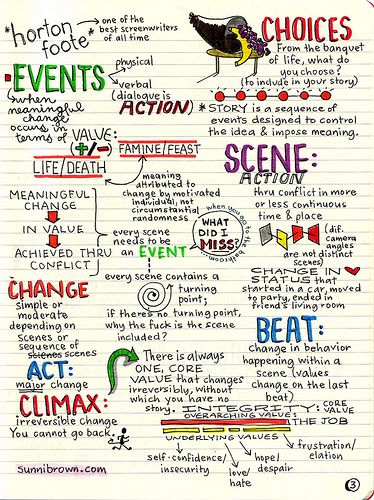 *horton foote*
one of the
best screenwriters
of all time
EVENTS
physical
verbal
(dialogue is
ACTION)
when
meaningful
change
occurs in
terms of VALUE:
(+/-)
FAMINE/FEAST
LIFE/DEATH
meaning
attributed to
change by motivated
individual, not
circumstantial
randomness
MEANINGFUL
CHANGE
IN VALUE
ACHIEVED THRU
CONFLICT
every scene
needs to be
an EVENT
CHOICES
From the banquet
of life, what do
you choose?
(to include in your story)
* STORY is a sequence of
events designed to control
the idea & impose meaning.
SCENE:
ACTION
thru conflict in more
or less continuous
time & place
when you go to the bathroom...
WHAT
DID I
MISS?
(dif.
camera
angles
are not distinct
scenes)
CHANGE IN
STATUS that
started in a car, moved
to party, ended in
friend's living room
every scene contains a
turning
point;
if there's no turning point,
why the fuck is the scene
included?
CHANGE
simple or
moderate
depending on
scenes or
sequence of
scenes scenes
ACT:
major change
CLIMAX:
irreversible change
You cannot go back.
There is always
ONE, CORE
VALUE that changes
irreversibly, without
which you have no
story.
BEAT:
change in behavior
happening within a
scene (values
change on the last
beat)
INTEGRITY:
CORE
VALUE
OVERARCHING VALUES
THE JOB
UNDERLYING VALUES
self-confidence/
insecurity
love/
hate
hope/
despair
frustration/
elation
sunnibrown.com
3